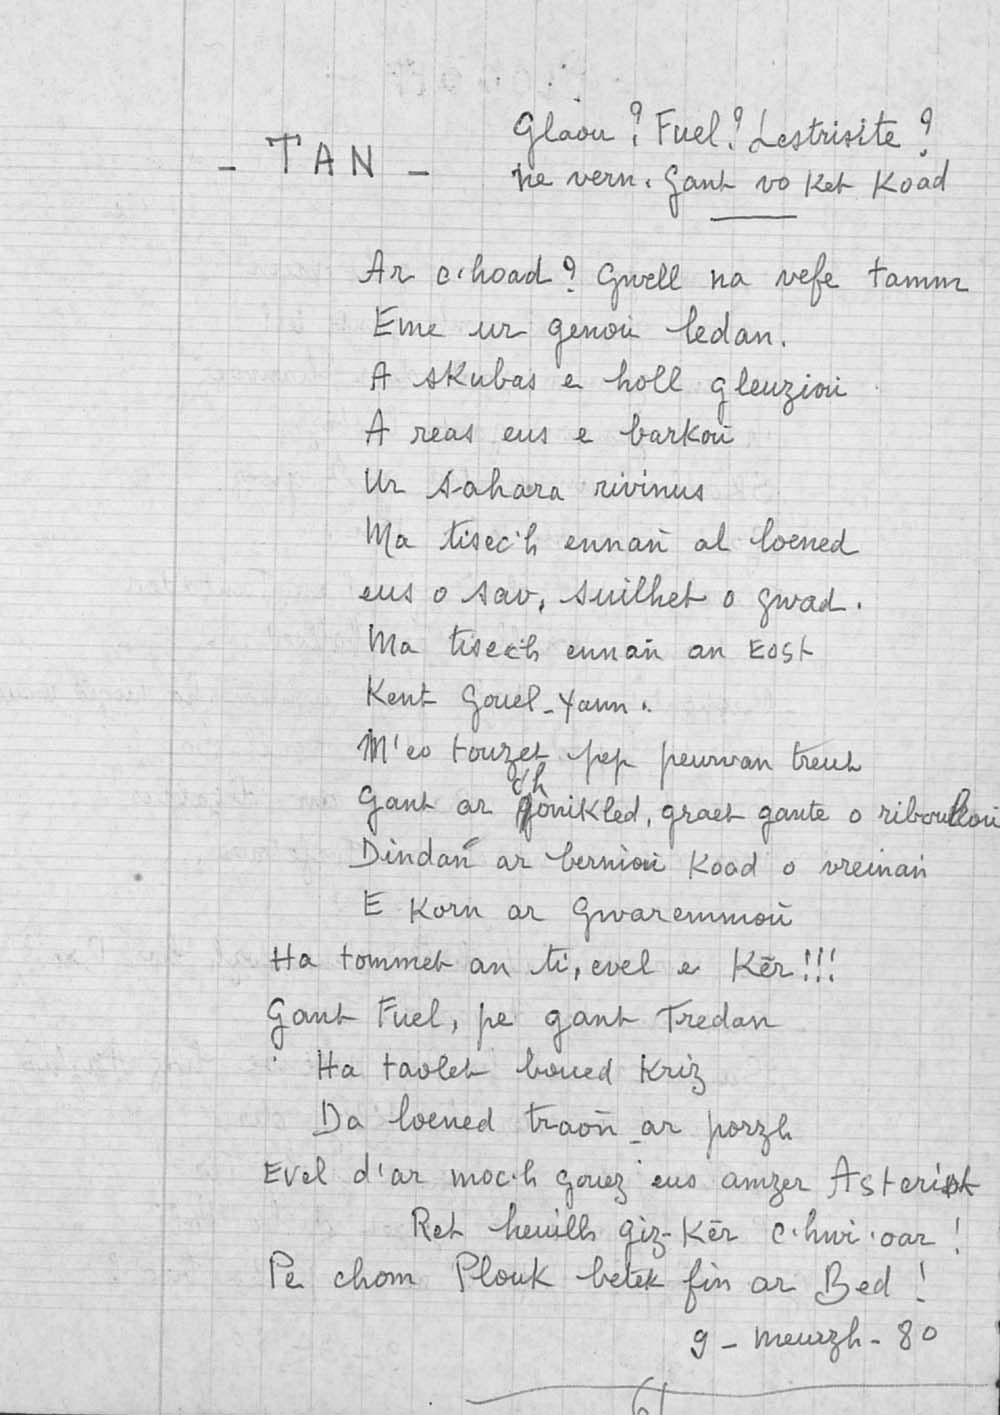 - TAN -
Glaou ? Fuel ? Lestrisite ?
ne vern. Gant vo ket Koad
Ar c'hoad ? Gwell na vefe tamm
Eme ur genoù ledan.
A skubas e holl gleuzioù
A reas eus e barkoù
Ur sahara rivinus
Ma tisec'h ennañ al loened
eus o sav, suilhet o gwad.
Ma tisec'h ennañ an Eost
Kent Gouel-Yann.
M'eo touzet pep peurvan treut
Gant ar c'hònikled, graet gante o riboulloù
Dindañ ar bernioù Koad o vreinañ
E Korn ar Gwaremmoù
Ha tommet an ti, evel e Kēr !!!
Gant Fuel, pe gant Tredan
Ha taolet boued Kriz
Da loened traoñ-ar porzh
Evel d'ar moc'h gouez eus amzer Asterix
Ret heuilh giz-Kēr c'hwi oar !
Pe chom Plouk betek fin ar Bed !
9 - meurzh - 80
61